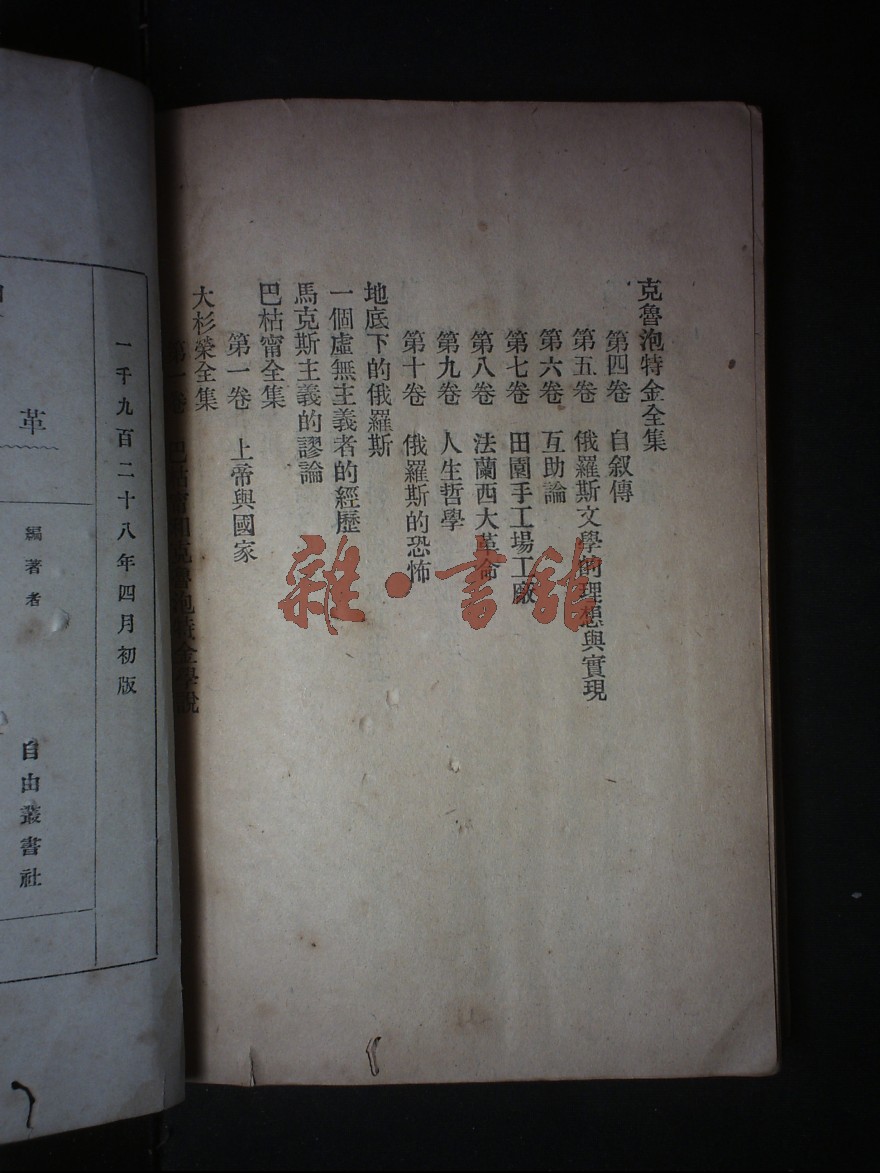 克魯泡特金全集
第四卷 自叙傳
第五卷 俄羅斯文學的理想與實現
第六卷 互助論
第七卷 田園手工場工廠
第八卷 法蘭西大革命
第九卷 人生哲學
第十卷 俄羅斯的恐怖
地底下的俄羅斯
一個虛無主義者的經歷
馬克斯主義的謬論
巴枯甯全集
第一卷 上帝與國家
大杉榮全集
一千九百二十八年四月初版
編著者 自由叢書社
革
雜·書館